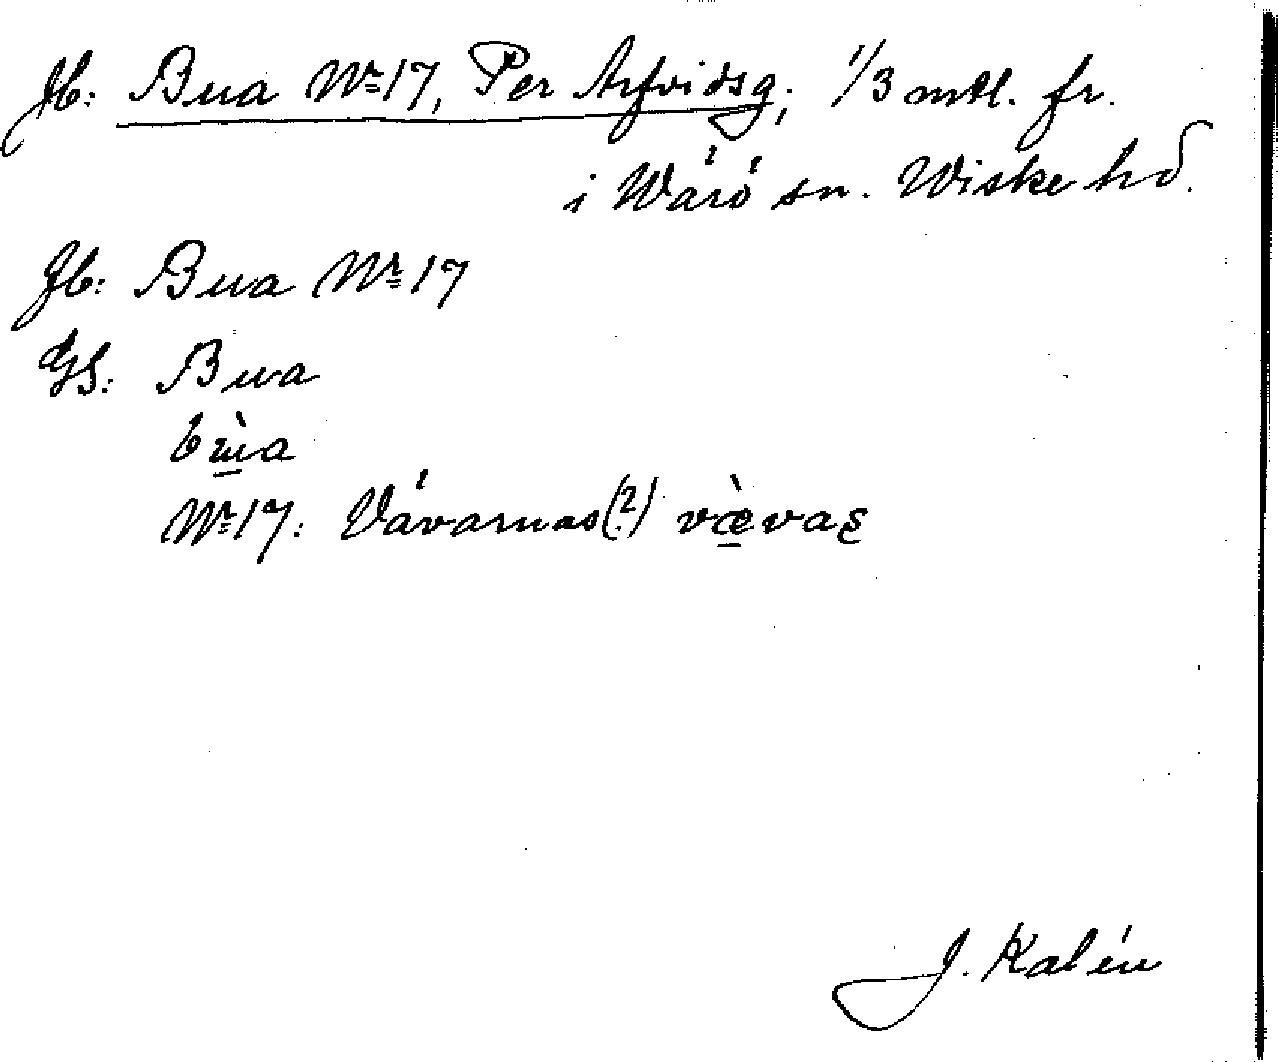 Jb: Bua Nr 17, Per Arfvidsg; 1/3 mtl. fr.
i Wärö sn. Wiske hd.
Jb: Bua Nr 17
GS: Bua
bùa
Nr 17: Vävarnas(?) væ̀vaʂ
J. Kalén